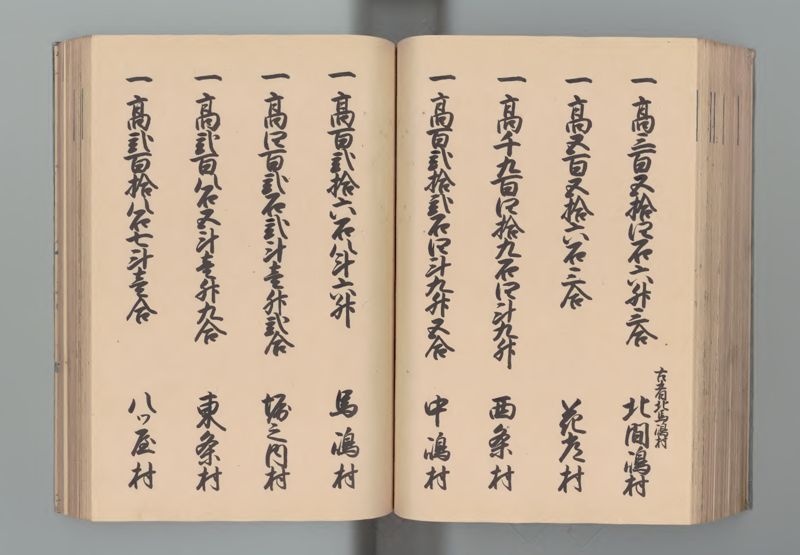 一 高三百五拾四石六升三合 古者北馬嶋村 北間嶋村
一 高五百五拾六石三合 花常村
一 高千九百四拾九石四斗九升 西条村
一 高百弐拾弐石四斗九升五合 中嶋村
一 高百弐拾六石八斗六升 馬嶋村
一 高四百弐石弐斗壱升弐合 堀之内村
一 高弐百八石五斗壱升九合 東条村
一 高弐百拾八石七斗壱合 八ツ屋村